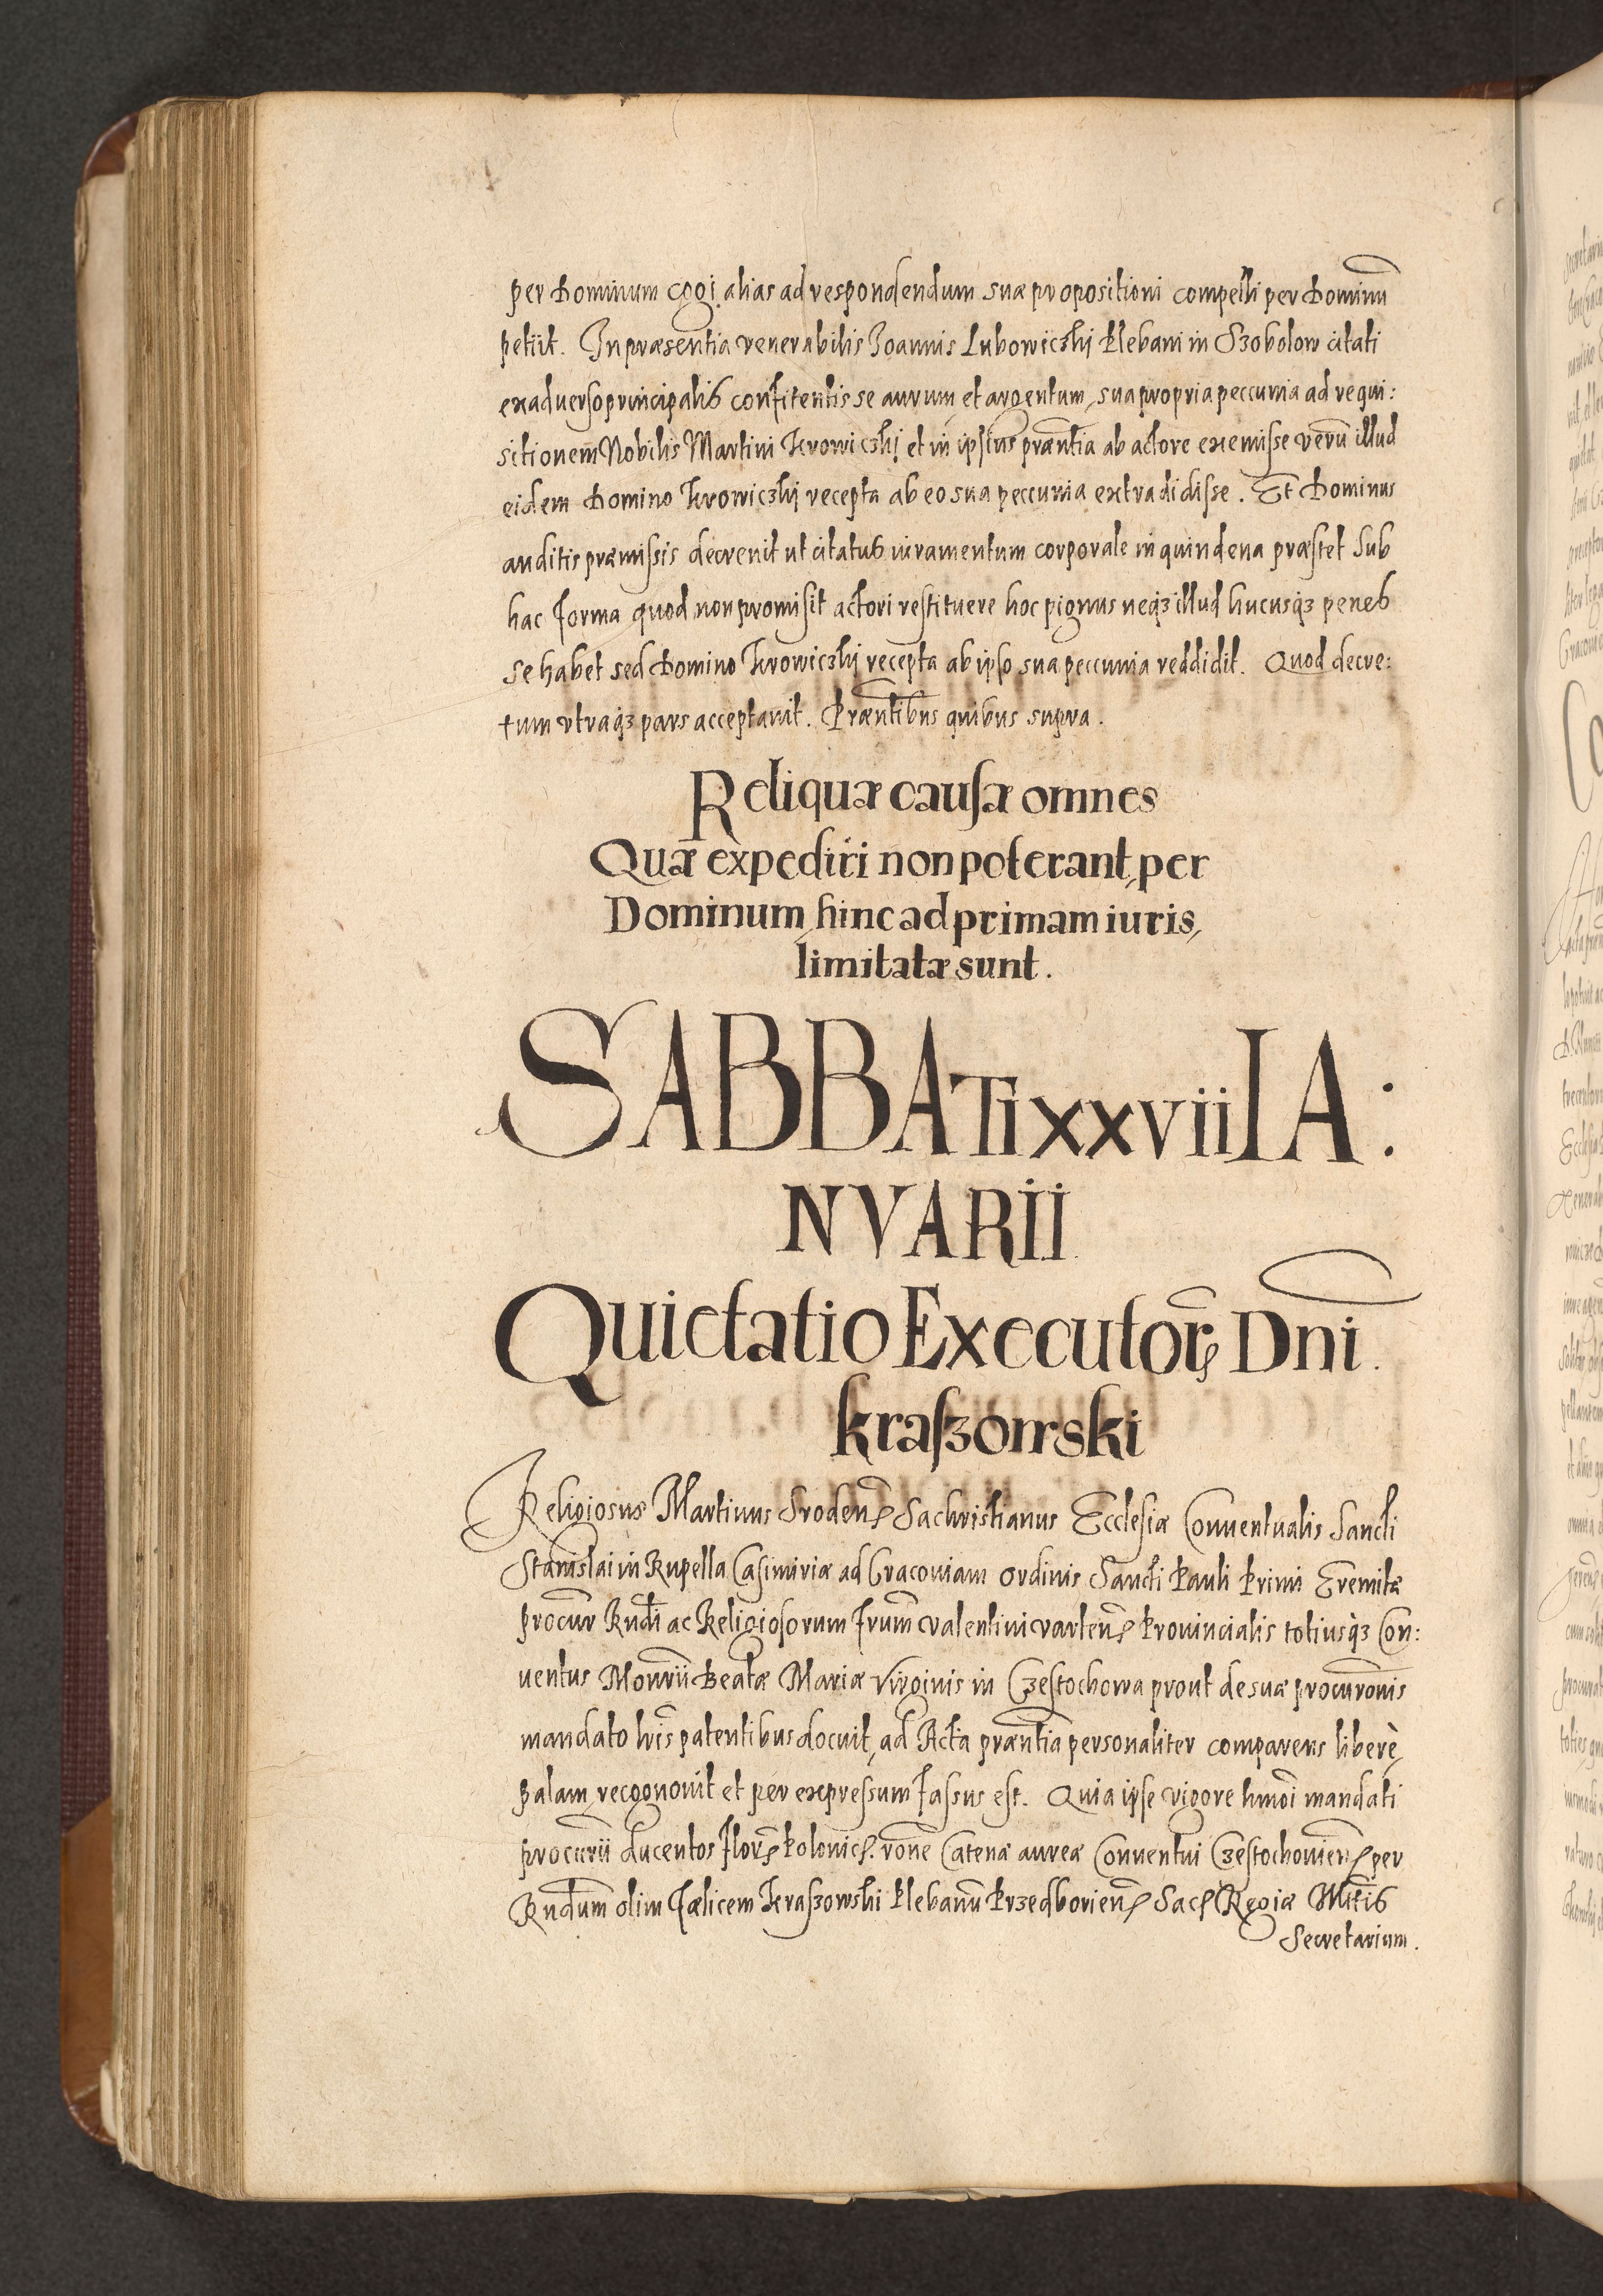 per Dominum cogi alias ad respondendum suæ propositioni compelli per Dominū
petiit. In præsentia venerabilis Joannis Lubowiczki Plebani in Szobolow citati
ex aduerso principalis confitentis se aurum et argentum, sua propria peccunia ad requi:
sitionem Nobilis Martini Krowiczki et in ipsius præntia ab actore exemisse verū illud
eidem Domino Krowiczki recepta ab eo sua peccunia extradidisse. Et Dominus
auditis præmissis decreuit ut citatus iuramentum corporale in quindena præstet sub
hac forma quod non promisit actori restituere hoc pignus neqꝫ illud hucusqꝫ penes
se habet sed Domino Krowiczki recepta ab ipso sua peccunia reddidit. Quod decre:
tum vtraqꝫ pars acceptauit. Præntibus quibus supra.
Reliquæ causæ omnes
Quæ expediri non poterant, per
Dominum hinc ad primam iuris,
limitatæ sunt.
SABBATi xxvii IA:
NVARII
Quietatio Executorꝫ Dni.
kraſzowski
Religiosus Martinus Srodenꝭ Sachristianus Ecclesiæ Conuentualis Sancti
Stanislai in Rupella Casimiriæ ad Cracouiam ordinis Sancti Pauli Primi Eremitæ
procur Rndi ac Religiosorum frum Valentini Vartenꝭ Prouincialis totiusqꝫ Con:
uentus Monrii Beatæ Mariæ Virginis in Czestochowa prout de suæ procuronis
mandato lris patentibus docuit, ad Acta præntia personaliter comparens liberè,
palam, recognouit et per expressum fassus est. Quia ipse vigore hmoi mandati
procurii ducentos florꝭ Polonicꝭ. rone Catenæ aureæ Conuentui Czestochouienꝭ per
Rndum olim Fælicem Kraszowski Plebanū Przedborienꝭ Sacꝭ Regiæ Mtis
Secretarium.